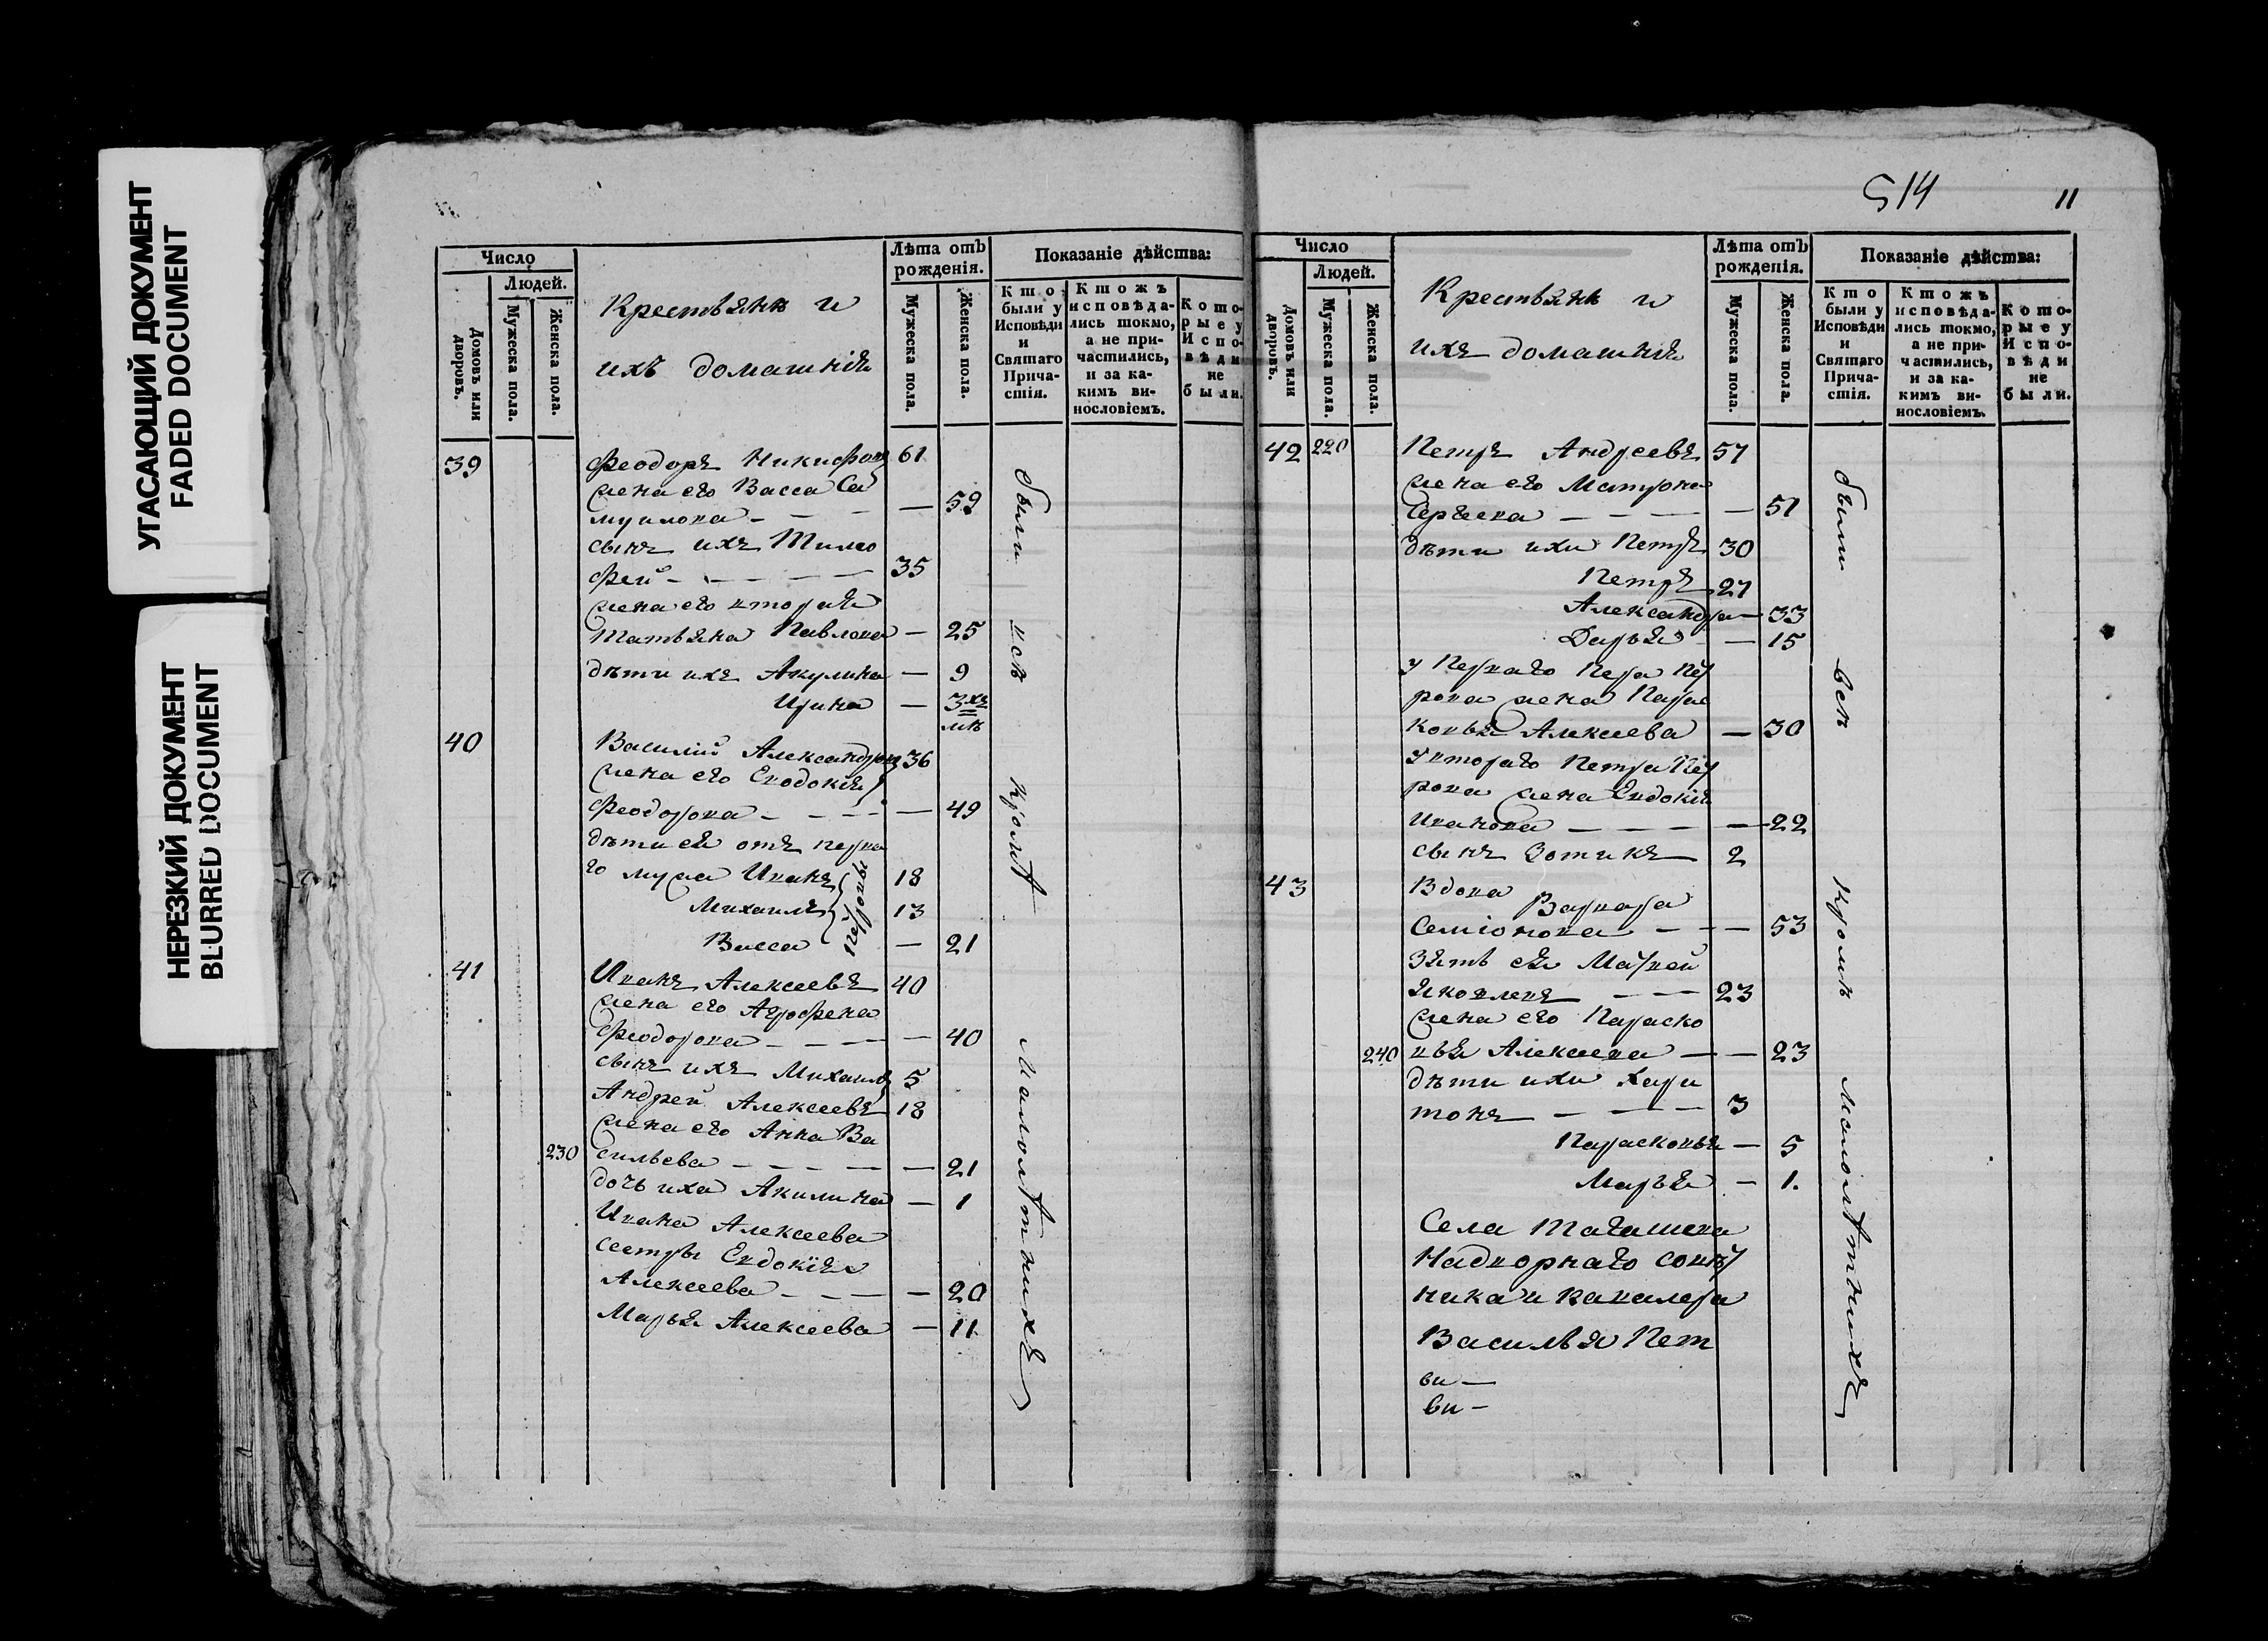 УГАСАЮЩИЙ ДОКУМЕНТ
FADED DOCUMENT
НЕРЕЗКИЙ ДОКУМЕНТ
BLURRED DOCUMENT
Число
Людей.
Домовъ или дворовъ.
Мужеска пола.
Женска пола.
Крестьянѣ и
ихъ домашнія
Лѣта отъ рожденія.
Мужеска пола.
Женска пола.
Показаніе дѣйства:
Кто были у Исповѣди и Святаго Причастія.
Ктожъ исповѣдались токмо, а не причастились, и за какимъ винословіемъ.
Которые у Исповѣди не были.
39 Феодоръ Никифоровъ 61
жена его Васса Са
муилова — 59
сынъ ихъ Тимо
фей 35
жена его вторая
Татьяна Павлова — 25
дѣти ихъ Акулина — 9
Ирина — 3хъ
лѣ
40 Василій Александровъ 36
жена его Евдокія
Феодорова — 49
дѣти ея отъ перва
го мужа Иванъ 18
Михаилъ 13
Васса — 21
Петровы
41 Иванъ Алексеевъ 40
жена его Агрофена
Феодорова — 40
сынъ ихъ Михаилъ 5
Андрей Алексеевъ 18
жена его Анна Ва
230 сильева — 21
дочь иха Акилина — 1
Ивана Алексеева
сестры Евдокія
Алексеева — 20
Марья Алексеева — 11
были всѣ кромѣ малолѣтнихъ
514
11
Число
Людей.
Домовъ или дворовъ.
Мужеска пола.
Женска пола.
Крестьянѣ и
ихъ домашнія
Лѣта отъ рожденія.
Мужеска пола.
Женска пола.
Показаніе дѣйства:
Кто были у Исповѣди и Святаго Причастія.
Ктожъ исповѣдались токмо, а не причастились, и за какимъ винословіемъ.
Которые у Исповѣди не были.
42 220 Петръ Андреевъ 57
жена его Матрона
Сергеева — 51
дѣти ихи Петръ 30
Петръ 27
Александра — 33
Дарья — 15
у Перваго Пера Пет
рова жена Парас
ковья Алексеева — 30
у втораго Петра Пет
рова жена Евдокія
Иванова — 22
сынъ Зотикъ 2
43 Вдова Варвара
Семіонова — 53
зять ея Маркей
Яковлевъ 23
жена его Параско
240 вья Алексеева — 23
дѣти ихи Хари
тонъ 3
Парасковья — 5
Марья — 1.
Села Тагашева
Надворнаго совѣт
ника и кавалера
Василья Пет
ви —
ви —
были всѣ кромѣ малолѣтнихъ